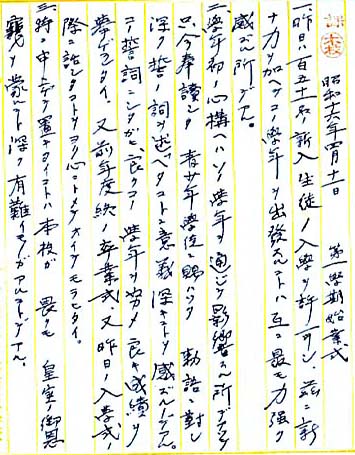 昭和十六年四月十一日　第一學期始業式
一、昨日ハ百五十名ノ新入生徒ノ入學ヲ許可シ、茲ニ新
ナ力ヲ加ヘテコノ學年ヲ出發スルコトハ互ニ最モ力強ク
感ズル所デアル。
二、學年初ノ心構ヘハソノ學年ヲ通ジテ影響スル所デアル
只今奉讀シタ　青少年學徒ニ賜ハリタル　勅語ニ對シ
深ク誓ノ詞ヲ述ベタコトハ意義深キコトヲ感ズルノデアル。
コノ誓詞ニシタガヒ、良クコノ學年ヲ始メ良キ成績ヲ
擧ゲラレタイ。又前年度終ノ卒業式、又昨日ノ入學式ノ
際ニ話シタコトヲヨク心ニトメテオイテモラヒタイ。
三、特ニ申シテ置キタイコトハ本校ガ　畏クモ　皇室ノ御恩
寵ヲ蒙ルコト深ク有難イモノガアルコトデアル。